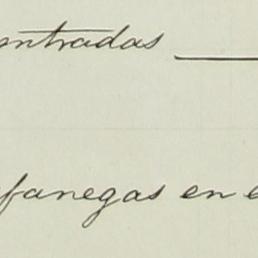 entradas
fanegas en e